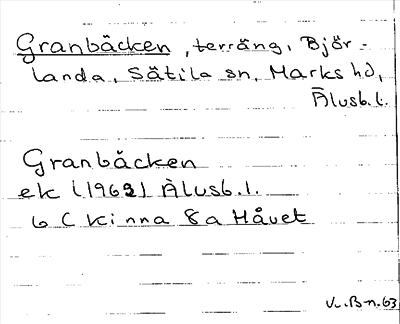 Granbäcken, terräng, Björ-
landa, Sätila sn, Marks hd,
Älvsb. l.
Granbäcken
ek (1963) Älvsb. l.
6 C Kinna 8a Håvet
V.B-n.63